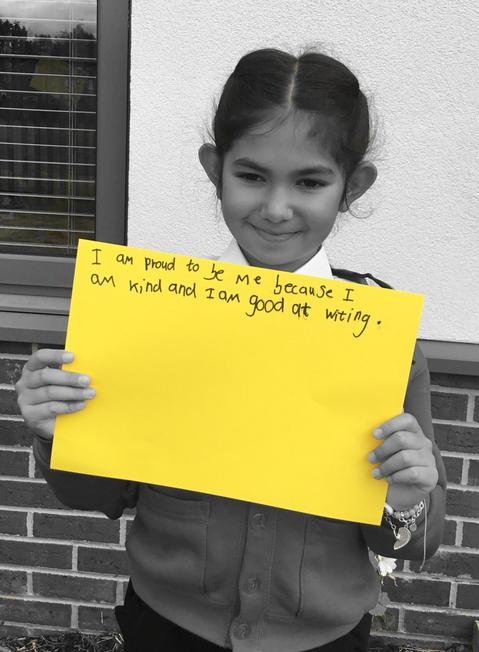 I am proud to be me because I
am kind and I am good at witing.